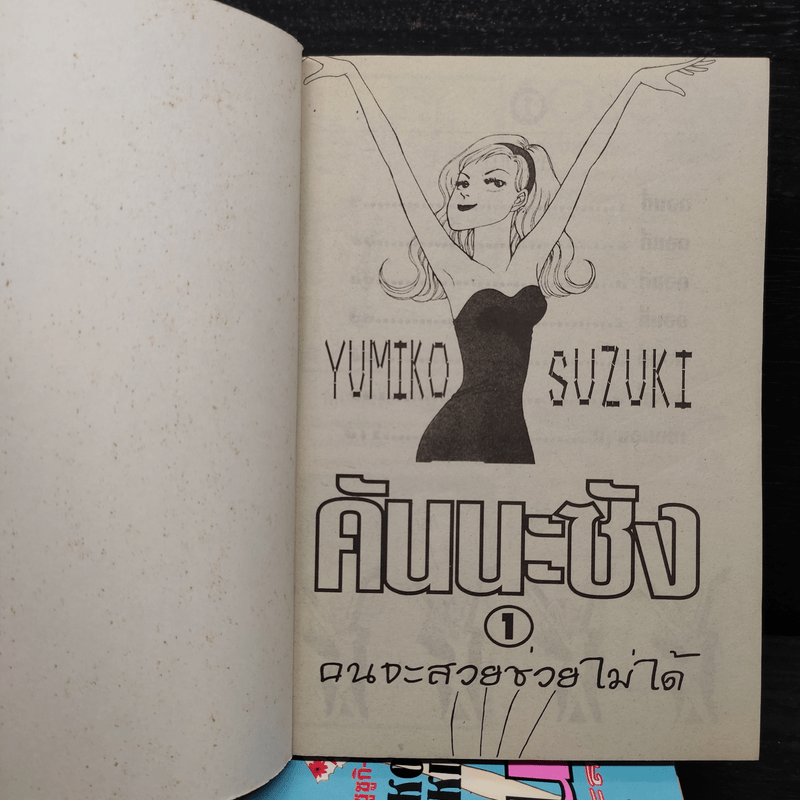 YUMIKO SUZUKI
คันนะซัง
1
คนจะสวยช่วยไม่ได้